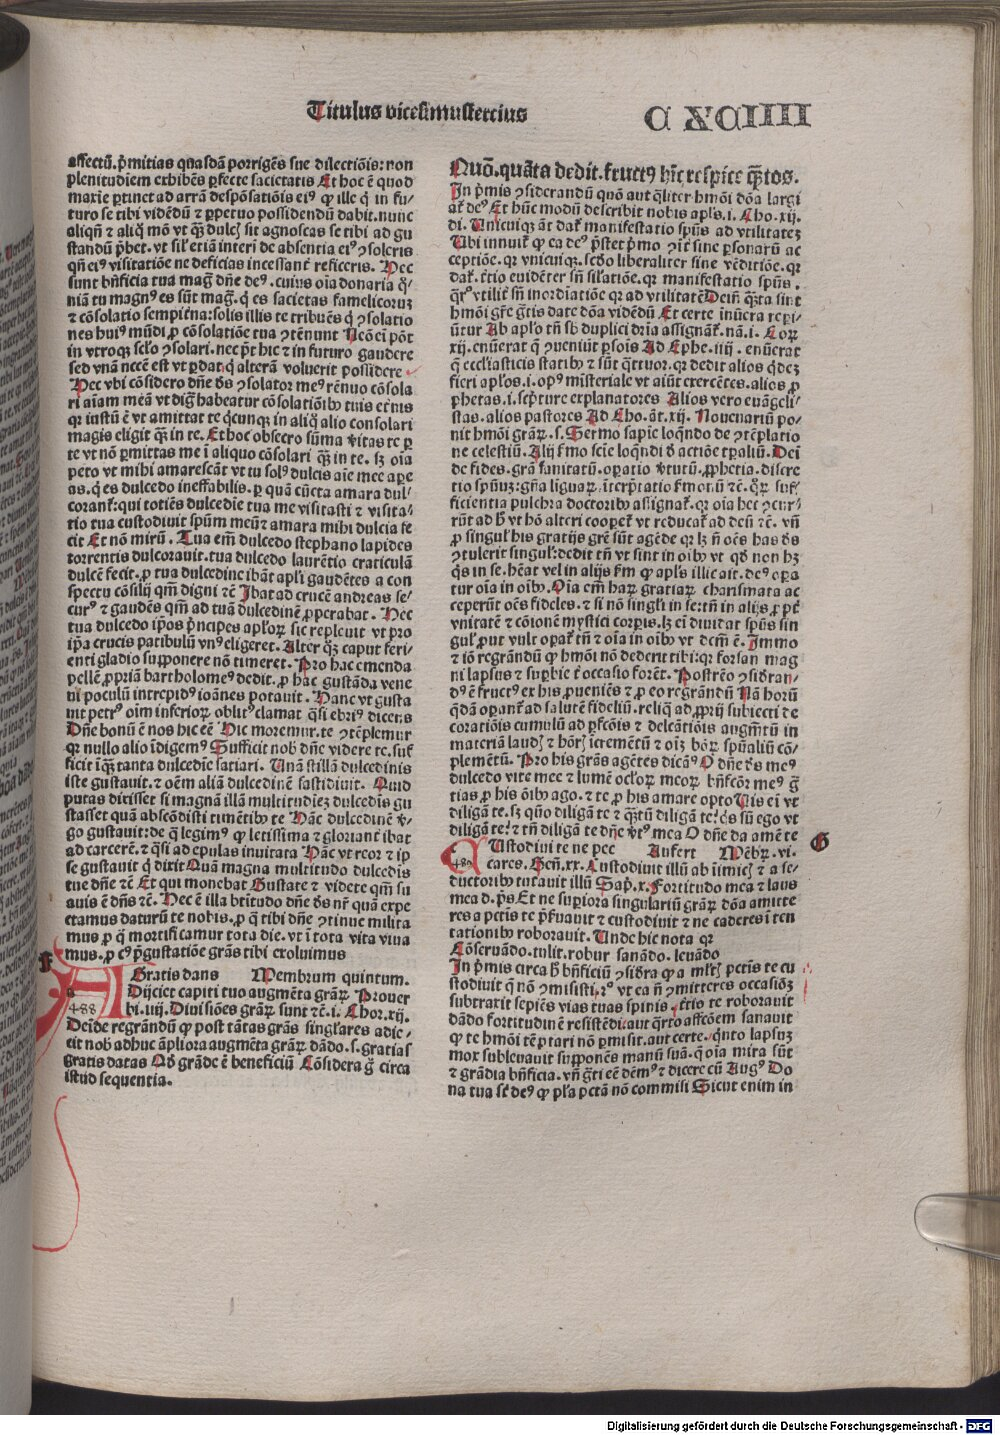 Titulus vicesimustercius
C XCIIII
affectū. p̄mitias quasdā porrigēs sue dilectiōis: non
plenitudīem exhibēs ꝑfecte sacietatis Et hoc ē quod
maxīe ꝑtinet ad arrā despōsatiōis eiꝰ ꝙ ille q̄ in fu-
turo se tibi vidēdū ⁊ ꝑpetuo possidendū dabit. nunc
aliqn̄ ⁊ aliq̄ mō vt qꝫ dulcꝭ sit agnoscas se tibi ad gu
standū p̄bet. vt sił etiā interī de absentia eiꝰ ꝯsoleris
qn̄ eiꝰ visitatiōe ne deficias incessant̄ reficeris. Hec
sunt bn̄ficia tua mag̅ dn̄e deꝰ. cuius oīa donaria q̄-
niā tu magnꝰ es sūt mag̅. q̄ es sacietas famelicorum
⁊ cōsolatio sempit̄na: solis illis te tribuēs q̄ ꝯsolatio
nes huiꝰ mūdi ꝑ cōsolatiōe tua ꝯtēnunt Nō ē ei pōt
in vtroqꝫ sc̄lo ꝯsolari. nec p̄t hic ⁊ in futuro gaudere
sed vnā necc̄e est vt ꝑdat. q̄ alterā voluerit possidere
Hec vbi cōsidero dn̄e ds̄ ꝯsolator meꝰ rēnuo cōsola
ri aīam meā vt dig̅ habeatur cōsolatiōibꝰ tuis et̄nis
qꝛ iustū ē vt amittat te q̄cunqꝫ in aliq̄ alio consolari
magis eligit qꝫ in te. Et hoc obsecro sūma v̄itas te ꝑ
te vt nō ꝑmittas me ī aliquo cōsolari qꝫ in te. sꝫ oīa
peto vt mihi amarescāt vt tu solꝰ dulcis aīe mee apꝑe
as. q̄ es dulcedo ineffabilis. ꝑ quā cūcta amara dul-
corant̄: qui totiēs dulcedīe tua me visitasti ⁊ visita-
tio tua custodiuit spūm meū ⁊ amara mihi dulcia fe
cit Et nō mirū. Tua em̄ dulcedo stephano lapides
torrentis dulcorauit. tua dulcedo laurētio craticulā
dulcē fecit. ꝑ tua dulcedine ibāt apl̄i gaudētes a con
spectu cōsilij qm̄ digni ⁊c̄ Ibat ad crucē andreas se-
curꝰ ⁊ gaudēs qm̄ ad tuā dulcedinē ꝓperabat. Hec
tua dulcedo ip̄os p̄ncipes apl̄oꝝ sic repleuit vt pro
ip̄a crucis patibulū vnꝰ eligeret. Alter q̄ꝫ caput feri-
enti gladio supponere nō timeret. Pro hac emenda
pellē ꝓpriā bartholomeꝰ dedit. ꝓ hac gustāda vene
ni poculū intrepidꝰ ioānes potauit. Hanc vt gusta
uit petrꝰ oīm inferioꝝ oblitꝰ clamat q̄si ebriꝰ dicens
Dn̄e bonū ē nos hic eē Hic moremur. te ꝯtēplemur
qꝛ nullo alio īdigemꝰ Sufficit nob̄ dn̄e videre te. suf
ficit īqꝫ tanta dulcedīe satiari. Unā stillā dulcedinis
iste gustauit. ⁊ oēm aliā dulcedinē fastidiuit. Quid
putas dixisset si magnā illā multitudiez dulcedis gu
stasset quā abscōdisti timētibꝰ te Hāc dulcedinē v̄-
go gustauit: de q̄ legimꝰ ꝙ letissima ⁊ gloriant̄ ibat
ad carcerē. ⁊ q̄si ad epulas inuitata Hāc vt reor ⁊ ip
se gustauit q̄ dixit Quā magna multitudo dulcedis
tue dn̄e ⁊c̄ Et qui monebat Gustate ⁊ videte qm̄ su
auis ē dn̄s ⁊c̄. Hec ē illa btitudo dn̄e ds̄ nr̄ quā expe
ctamus daturū te nobis. ꝓ q̄ tibi dn̄e ꝯtinue milita
mus ꝓ q̄ mortificamur tota die. vt ī tota vita viua
mus. ꝓ cꝰ p̄gustatiōe grās tibi exoluimus
F
Gratis dans Membrum quintum.
A Dijciet capiti tuo augmēta grāꝝ Prouer
488 bi. iiij. Diuisiōes grāꝝ sunt ⁊c̄. i. Chor. xij.
Deīde regrādū ꝙ post tātas grās singłares adie-
cit nob̄ adhuc āpliora augmēta grāꝝ dādo. s. gratias
gratis datas Qd̄ grāde ē beneficiū Cōsidera g̅ circa
istud sequentia.
Quō. quāta dedit. fructꝰ hīc respice qꝫtos.
In p̄mis ꝯsiderandū quō aut q̄liter hmōi dōa largi
at̄ deꝰ Et hūc modū describit nobis apl̄s. i. Cho. xij.
di. Unicuiqꝫ āt dat̄ manifestatio spūs ad vtilitatez
Ubi innuit̄ ꝙ ea deꝰ p̄stet p̄mo ꝯīt̄ sine ꝑsonarū ac
ceptiōe. qꝛ vnicuiqꝫ. scd̄o liberaliter sine vēditiōe. qꝛ
dat̄. t̄tio euidēter sn̄ siłatiōe. qꝛ manifestatio spūs.
q̄rꝰ vtilit̄ sn̄ inordīatiōe qꝛ ad vtilitatē Dein̄ q̄ta sint
hmōi gr̄e g̅tis date dōa vidēdū Et certe inūera repi-
ūtur Ab apl̄o tn̄ sb̄ duplici dr̄ia assignat̄. nā. i. Coꝝ
xij. enūerat q̄ ꝯueniūt ꝑsōis Ad Ephe. iiij. enūerat
q̄ ecc̄lasticis statibꝰ ⁊ sūt q̄ttuor. qꝛ dedit alios q̄dez
fieri apl̄os. i. opꝰ mīsteriale vt aiūt exercētes. alios ꝓ
phetas. i. scpture explanatores Alios vero euāgeli-
stas. alios pastores Ad Cho. āt. xij. Nouenariū po-
nit hmōi grāꝝ. s. Sermo sapīe loq̄ndo de ꝯtēplatio
ne celestiū. Alij f̄mo scīe loq̄ndi d̄ actiōe tꝑaliū. Dei
de fides. grā sanitatū. oꝑatio v̄tutū. ꝓphetia. discre
tio spūuz: gn̄a liguaꝝ. īterp̄tatio f̄monū ⁊c̄. q̄ꝝ suf-
ficientia pulchra doctoribꝰ assignat̄. qꝛ oīa hec ꝯcur-
rūt ad h̄ vt hō alteri cooperet̄ vt reducat̄ ad deū ⁊c̄. vn̄
ꝓ singułˢ his gratijs gr̄e sūt agēde qꝛ lꝫ n̄ oēs has ds̄
ꝯtulerit singułˢ: dedit tn̄ vt sint in oībꝰ vt qd̄ non hꝫ
q̄s in se. hēat vel in alijs f̄m ꝙ apl̄s illic ait. deꝰ oꝑa
tur oīa in oībꝰ. Oīa em̄ haꝝ gratiaꝝ charismata ac
ceperūt oēs fideles. ⁊ si nō singłi in se: tn̄ in alijs ꝓpt̄
vnitatē ⁊ cōionē mystici corpis. lꝫ ei diuidat spūs sin
gułˢ ꝓut vult oꝑat̄ tn̄ ⁊ oīa in oībꝰ vt dcm̄ ē. Immo
⁊ iō regrādū ꝙ hmōi nō dederit tibi: qꝛ forsan mag
ni lapsus ⁊ supbie t̄ occasio forēt. Postrēo ꝯsideran-
dꝰ ē fructꝰ ex his ꝓueniēs ⁊ ꝓ eo regrādū Nā horū
q̄dā oꝑant̄ ad salutē fideliū. reliq̄ ad ꝓprij subiecti de
coratiōis cumulū ad ꝑfcōis ⁊ delcātiōis augm̄tū in
materiā laudꝭ ⁊ hōrꝭ īcremētū ⁊ oīꝫ bōꝝ spūaliū cō-
plemētū. Pro his grās agētes dicāꝰ O dn̄e ds̄ meꝰ
dulcedo vite mee ⁊ lumē oc̄łoꝝ meoꝝ. bn̄fcōꝝ meꝰ g̅
tias ꝓ his oībꝰ ago. ⁊ te ꝓ his amare opto Uis ei vt
diligā te. sꝫ quō diligā te ⁊ q̄tū diligā te? q̄s sū ego vt
diligā te? ⁊ tn̄ diligā te dn̄e v̄tꝰ mea O dn̄e da amē te
C Ustodiui te ne pec Aufert Mēbꝝ. vi. G
489 cares. Gen̄. xx. Custodiuit illū ab iimicꝭ ⁊ a se-
ductoribꝰ tutauit illū Sap̄. x. Fortitudo mea ⁊ laus
mea d. ps̄ Et ne supiora singulariū grāꝝ dōa amitte
res a pctīs te p̄ꝰuauit ⁊ custodiuit ⁊ ne caderes ī ten
tationibꝰ roborauit. Unde hic nota qꝛ
Cōseruādo. tulit. robur sanādo. leuādo
In p̄mis circa h̄ bn̄ficiū ꝯsidra ꝙ a młtꝭ pctīs te cu
stodiuit q̄ nō ꝯmisisti. rꝰ vt ea n̄ ꝯmitteres occasiōꝫ
subtraxit sepiēs vias tuas spinis. t̄tio te roborauit
dādo fortitudinē resistēdi. aut q̄rto affcōem sanauit
ꝙ te hmōi tēptari nō ꝑmisit. aut certe. q̄nto lapsuꝫ
mox subleuauit supponēs manū suā. q̄ oīa mira sūt
⁊ grādia bn̄ficia. vn̄ g̅ti eē dēmꝰ ⁊ dicere cū Augꝰ Do
na tua st̄ deꝰ ꝙ pl̄a pctā nō commisi Sicut enim in
Digitalisierung gefördert durch die Deutsche Forschungsgemeinschaft - DFG